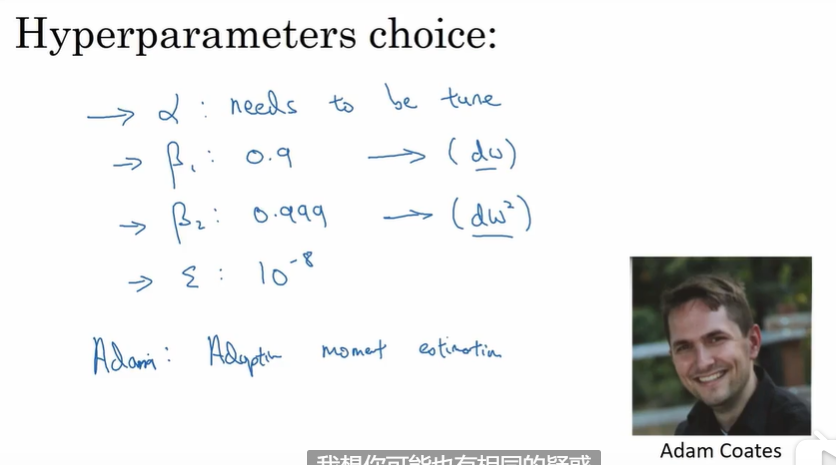 Hyperparameters choice:
→ α : needs to be tune
→ β₁ : 0.9 → (dw)
→ β₂ : 0.999 → (dw²)
→ ε : 10⁻⁸
Adam : Adaptin moment estimation
Adam Coates
我想你可能也有相同的疑惑